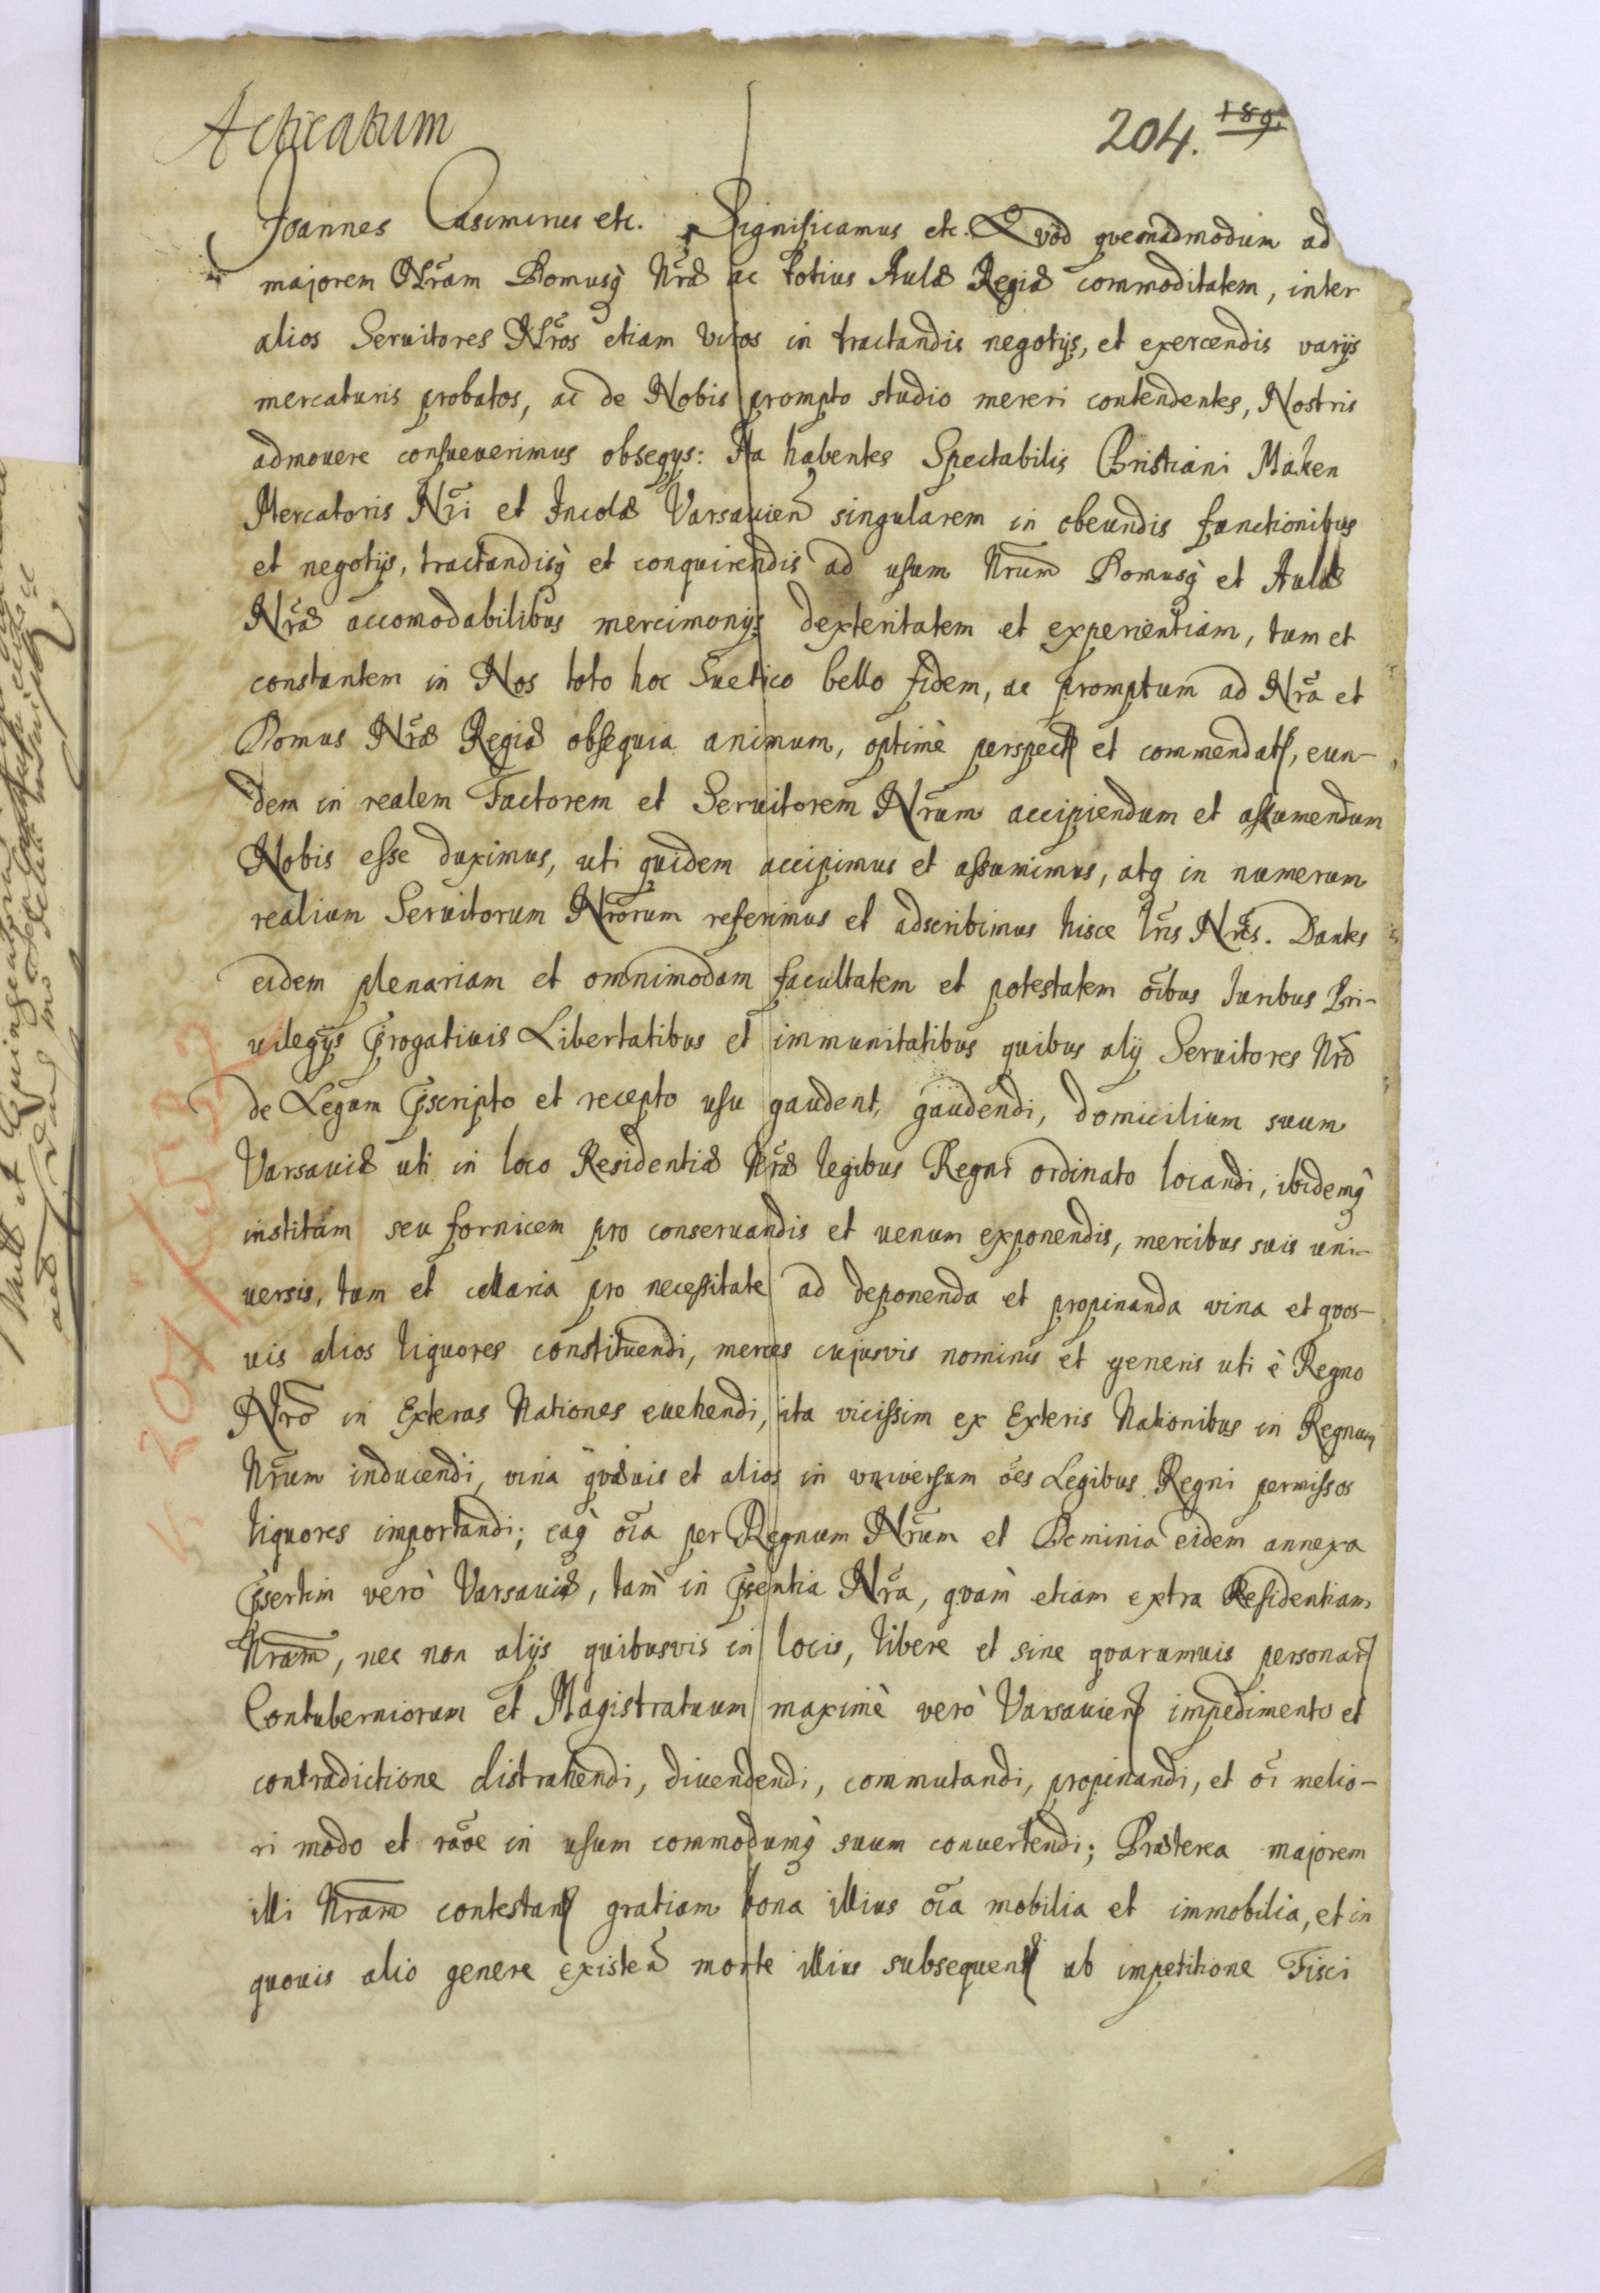 Acticatum
204. 189.
Joannes Casimirus etc. Significamus etc. Quod quemadmodum ad
majorem Nr̃am Domusq̀ Nr̃æ ac totius Aulæ Regiæ commoditatem, inter
alios Seruitores Nr̃os etiam viros in tractandis negotijs, et exercendis varijs
mercaturis probatos, ac de Nobis prompto studio mereri contendentes, Nostris
admouere consueuerimus obseqys: Ita habentes Spectabilis Christiani Maken
Mercatoris Nr̃i et Incolæ Varsavień singularem in obeundis functionibus
et negotijs, tractandisq̀ et conquirendis ad usum Nr̃um Domusq̀ et Aulæ
Nr̃æ accomodabilibus mercimonijs dexteritatem et experientiam, tum et
constantem in Nos toto hoc Suetico bello fidem, ac promptum ad Nr̃a et
Domus Nr̃æ Regiæ obsequia animum, optimè perspect et commendat, eun-
dem in realem Factorem et Seruitorem Nr̃um accipiendum et assumendum
Nobis esse duximus, uti quidem accipimus et assumimus, atq in numerum
realium Seruitorum Nr̃orum referimus et adscribimus hisce lr̃is Nr̃is. Dantes
eidem plenariam et omnimodam facultatem et potestatem oĩbus Juribus Pri-
uilegijs P̃rogatiuis Libertatibus et immunitatibus quibus alij Seruitores Nr̃i
de Legum P̃scripto et recepto usu gaudent, gaudendi, domicilium suum
Varsaviæ uti in loco Residentiæ Nr̃æ legibus Regni ordinato locandi, ibidemq̀
institam seu fornicem pro conseruandis et venum exponendis, mercibus suis uni-
versis, tum et cellaria pro necessitate ad deponenda et propinanda vina et quos-
uis alios liquores constituendi, merces cujusvis nominis et generis uti è Regno
Nr̃o in Exteras Nationes euehendi, ita vicissim ex Exteris Nationibus in Regnum
Nr̃um inducendi, vina quæuis et alios in universum oẽs Legibus Regni permissos
liquores importandi; eaq̀ oĩa per Regnum Nr̃um et Dominia eidem annexa
P̃sertim verò Varsaviæ, tam̀ in P̃sentia Nr̃a, quam̀ etiam extra Residentiam
Nr̃am, nec non alijs quibusvis in locis, libere et sine quarumuis personar
Contuberniorum et Magistratuum maximè verò Varsavien impedimento et
contradictione distrahendi, diuendendi, commutandi, propinandi, et oĩ melio-
ri modo et rãoe in usum commodumq̀ suum convertendi; Præterea majorem
illi Nr̃am contestan gratiam bona illius oĩa mobilia et immobilia, et in
quouis alio genere existeñ morte illius subsequen ab impetitione Fisci